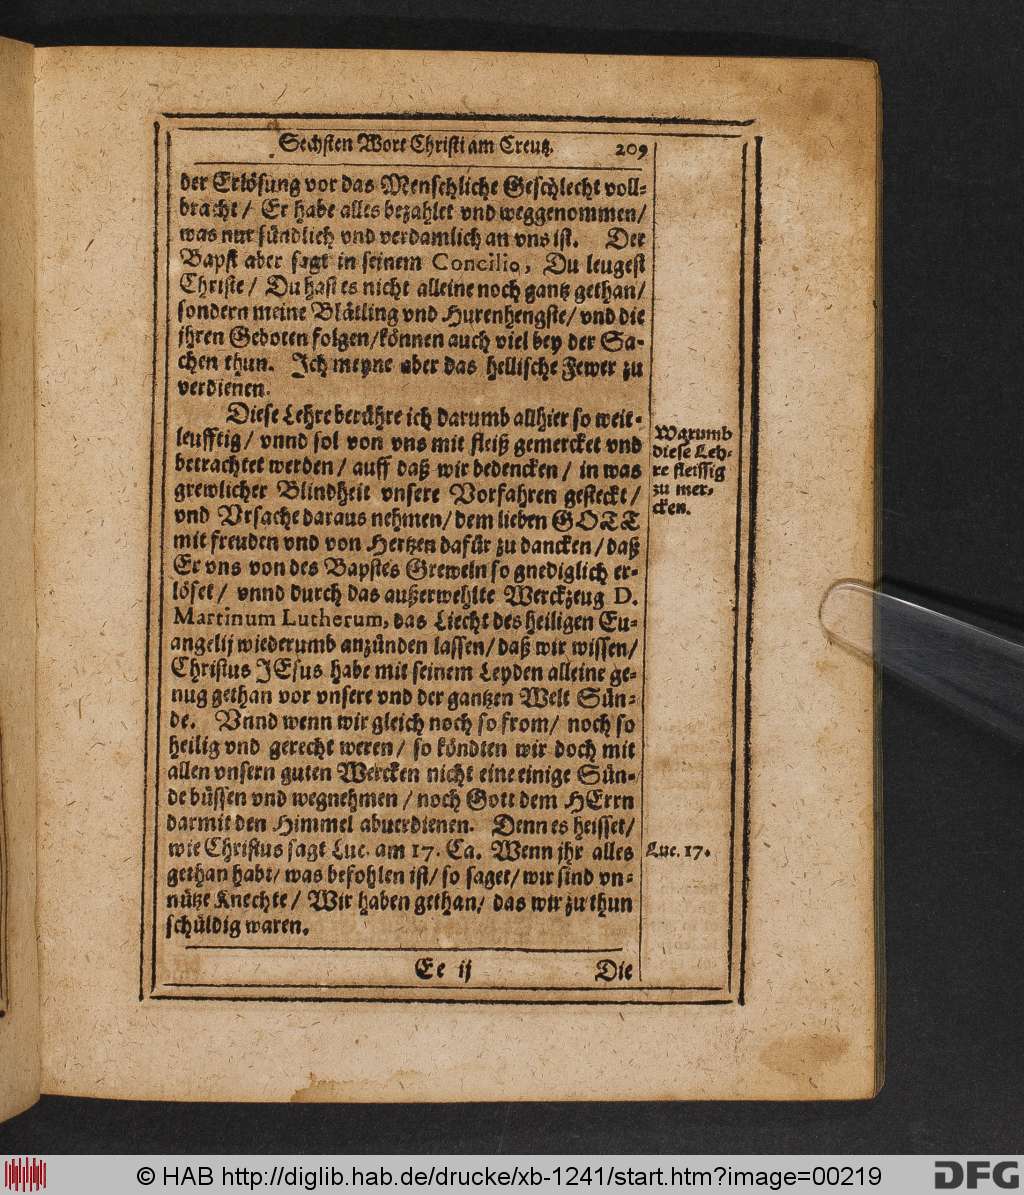 Sechsten Wort Christi am Creutz. 209
der Erlösung vor das Menschliche Geschlecht voll-
bracht / Er habe alles bezahlet vnd weggenommen /
was nur sündlich vnd verdamlich an vns ist. Der
Bapst aber sagt in seinem Concilio, Du leugest
Christe / Du hast es nicht alleine noch gantz gethan /
sondern meine Blätling vnd Hurenhengste / vnd die
jhren Geboten folgen / können auch viel bey der Sa-
chen thun. Ich meyne aber das hellische Fewer zu
verdienen.
Diese Lehre berühre ich darumb allhier so weit-
leufftig / vnnd sol von vns mit fleiß gemercket vnd
betrachtet werden / auff daß wir bedencken / in was
grewlicher Blindheit vnsere Vorfahren gesteckt /
vnd Vrsache daraus nehmen / dem lieben GOTT
mit freuden vnd von Hertzen dafür zu dancken / daß
Er vns von des Bapstes Greweln so gnediglich er-
löset / vnnd durch das außerwehlte Werckzeug D.
Martinum Lutherum, das Liecht des heiligen Eu-
angelij wiederumb anzünden lassen / daß wir wissen /
Christus JEsus habe mit seinem Leyden alleine ge-
nug gethan vor vnsere vnd der gantzen Welt Sün-
de. Vnnd wenn wir gleich noch so from / noch so
heilig vnd gerecht weren / so köndten wir doch mit
allen vnsern guten Wercken nicht eine einige Sün-
de büssen vnd wegnehmen / noch Gott dem HErrn
darmit den Himmel abuerdienen. Denn es heisset /
wie Christus sagt Luc. am 17. Ca. Wenn jhr alles
gethan habt / was befohlen ist / so saget / wir sind vn-
nütze Knechte / Wir haben gethan / das wir zu thun
schüldig waren.
Warumb
diese Leh-
re fleissig
zu mer-
cken.
Luc. 17.
Ee ij Die
© HAB http://diglib.hab.de/drucke/xb-1241/start.htm?image=00219
DFG